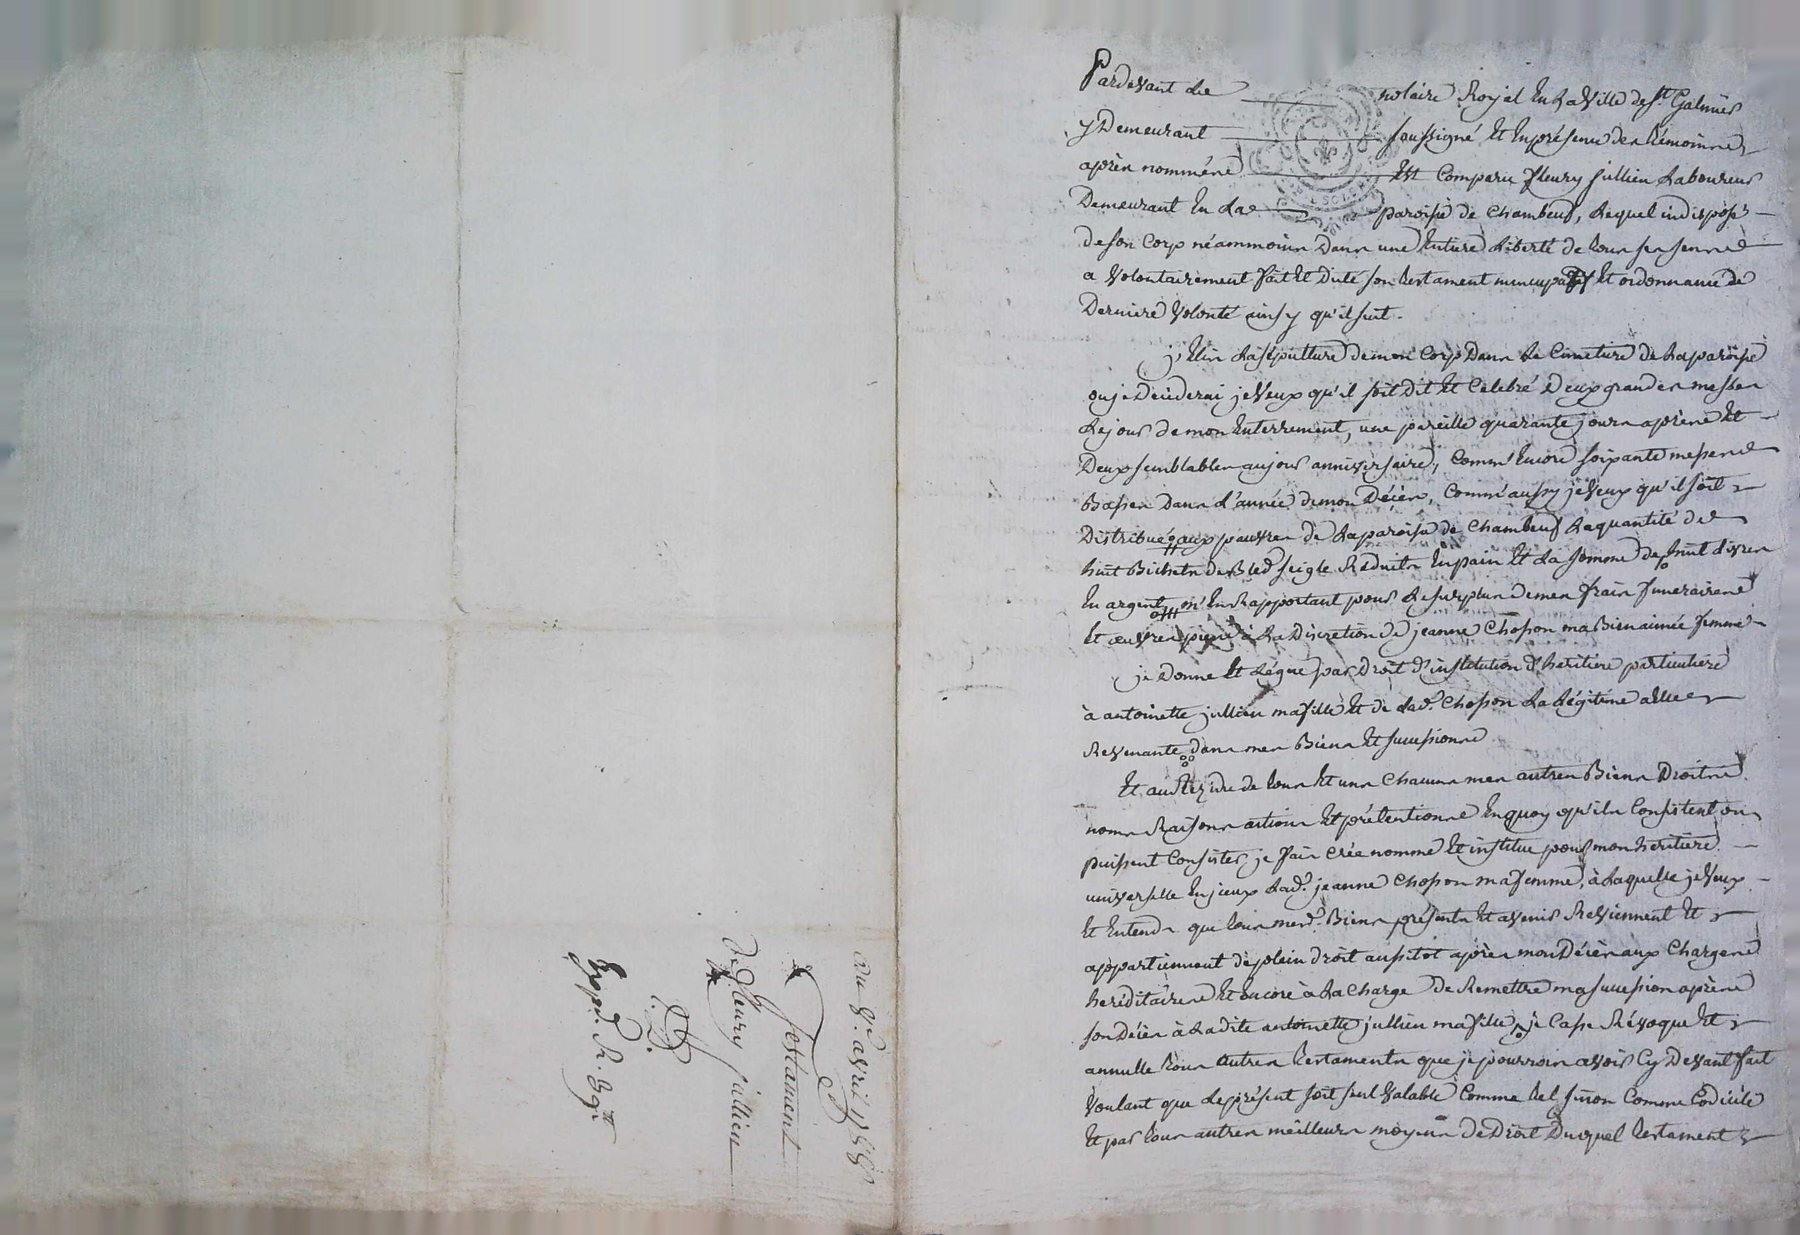 Pardevant Le notaire Royal En La Ville de St. Galmier
y Demeurant soussigné Et En présence des témoins
après nommés Est Comparu fleury jullien Laboureur
Demeurant En La paroisse de Chambeuf, Lequel indisposé
de son Corp néammoins Dans une Entiere Liberté de tous ses sens
a Volontairement fait Et Dicté son testament nuncupatif Et ordonnance de
Derniere Volonté ainsy qu'il suit.
j'Elis La sépulture de mon Corp Dans Le Cimetiere de La paroisse
ou je Déciderai je Veux qu'il soit Dit Et Celebré Deux grandes messes
Le jour de mon Enterrement, une pareille quarante jours après Et
Deux semblables au jour anniversaire, Comm' Encore soixante messes
Basses Dans L'année de mon Décès, Comme aussy je Veux qu'il soit
Distribué aux pauvres de La paroisse de Chambeuf La quantité de
huit Bichets de Bled seigle Réduits En pain Et La somme de huit Livres
En argent, m'En Rapportant pour Le surplus de mes frais funeraires
Et œuvres pies à La Discretion de jeanne Chosson ma Bien aimée femme
je Donne Et Légue par Droit d'institution d'heritiere particuliere
à antoinette jullien ma fille Et de Lad. Chosson La Légitime a Elle
Revenante dans mes Biens Et successions
Et au Rézidu de tous Et uns Chacuns mes autres Biens Droits
noms Raisons actions Et prétentions En quoy qu'ils Consistent ou
puissent Consister je fais Crée nomme Et institue pour mon heritiere
universelle Lad. jeanne Chosson ma femme, à Laquelle je Veux
Et Entends que tous mesd. Biens présents Et avenir Reviennent Et
appartiennent de plein droit aussitot après mon Décès aux Charges
heréditaires Et Encore à La Charge de Remettre ma succession après
son Décès à Ladite antoinette jullien ma fille, je Casse Révoque Et
annulle tous autres testaments que je pourrois avoir Cy Devant fait
Voulant que Le présent soit seul Valable Comme tel sinon Comme Codicile
Et par tous autres meilleurs moyens de Droit Duquel testament
Du 8e. avril 1788
Testament
de fleury jullien
Expd. R. Zgte